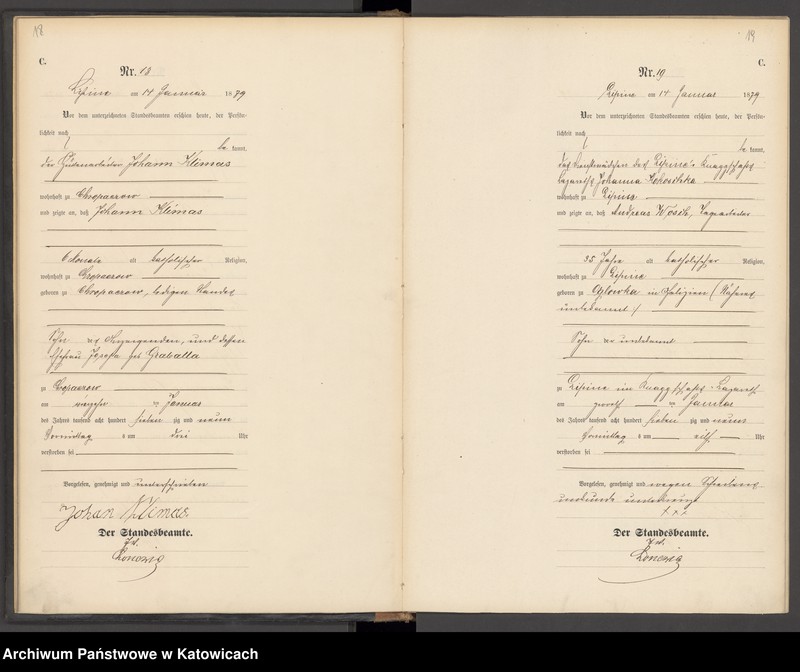 18
C.
Nr. 18
Lipine am 14 Januar 1879
Vor dem unterzeichneten Standesbeamten erschien heute, der Persön-
lichkeit nach
be kannt,
der Hüttenarbeiter Johann Klimas
wohnhaft zu Chropaczow
und zeigte an, daß Johann Klimas
6 Monate alt katholischer Religion,
wohnhaft zu Chropaczow
geboren zu Chropaczow, ledigen Standes
Sohn des Anzeigenden, und dessen
Ehefrau Josefa geb Graballa
zu Chropaczow
am Januar
des Jahres tausend acht hundert sieben zig und neun
Vormittag s um drei Uhr
verstorben sei
Vorgelesen, genehmigt und unterschrieben
Johan Klimas
Der Standesbeamte.
19
C.
Nr. 19
Lipine am 14 Januar 1879
Vor dem unterzeichneten Standesbeamten erschien heute, der Persön-
lichkeit nach
be kannt,
das Dienstmädchen des Lipine'r Knappschafts
Lazareths Johanna
wohnhaft zu Lipine
und zeigte an, daß Andreas Tagearbeiter
35 Jahre alt katholischer Religion,
wohnhaft zu Lipine
geboren zu in Galizien (Näheres
unbekannt)
Sohn der unbekannt
zu Lipine im Knappschafts-Lazareth
am Januar
des Jahres tausend acht hundert sieben zig und neun
Vormittag s um elf Uhr
verstorben sei
Vorgelesen, genehmigt und wegen Schreibens
unkunde
+++
Der Standesbeamte.
Archiwum Państwowe w Katowicach